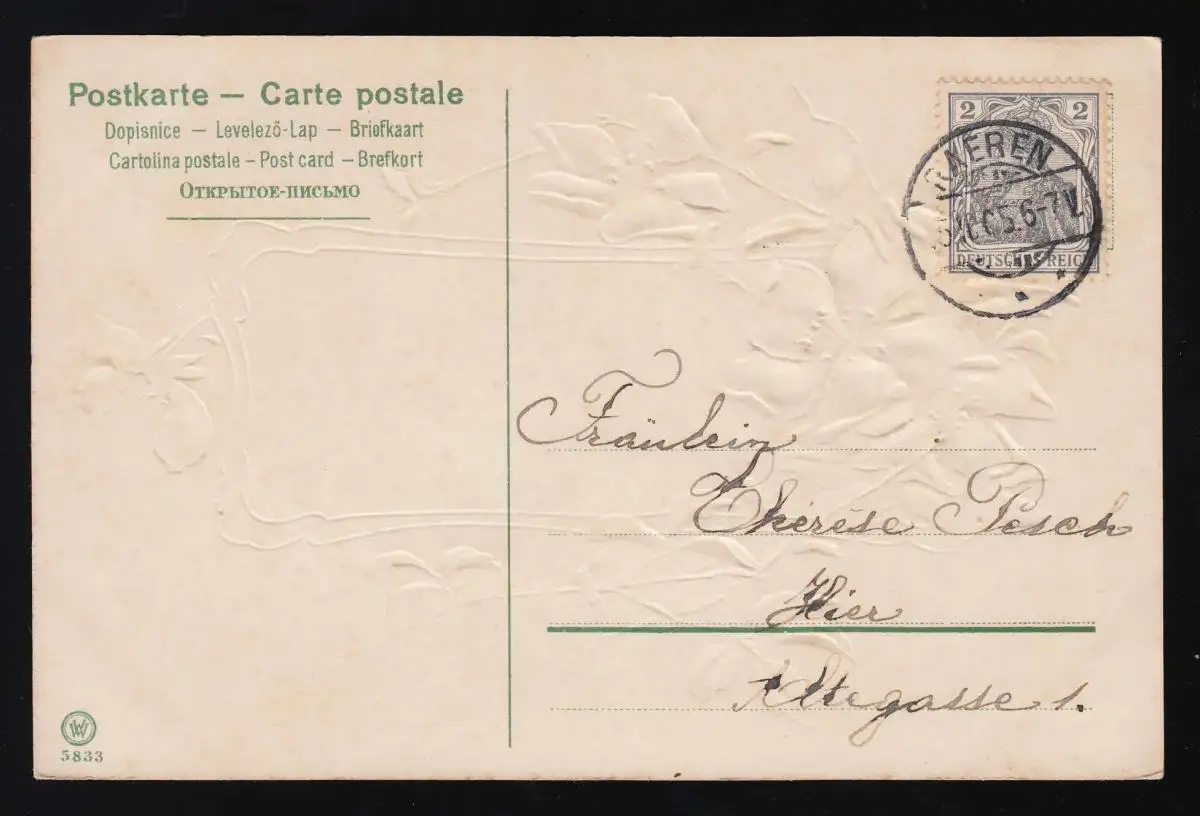 Postkarte — Carte postale
Dopisnice — Levelező-Lap — Briefkaart
Cartolina postale – Post card – Brefkort
Открытое-письмо
2 2
RAEREN
6-7N.
DEUTSCHES REICH
Fräulein
Therese Pesch
Hier
Altegasse 1.
5833